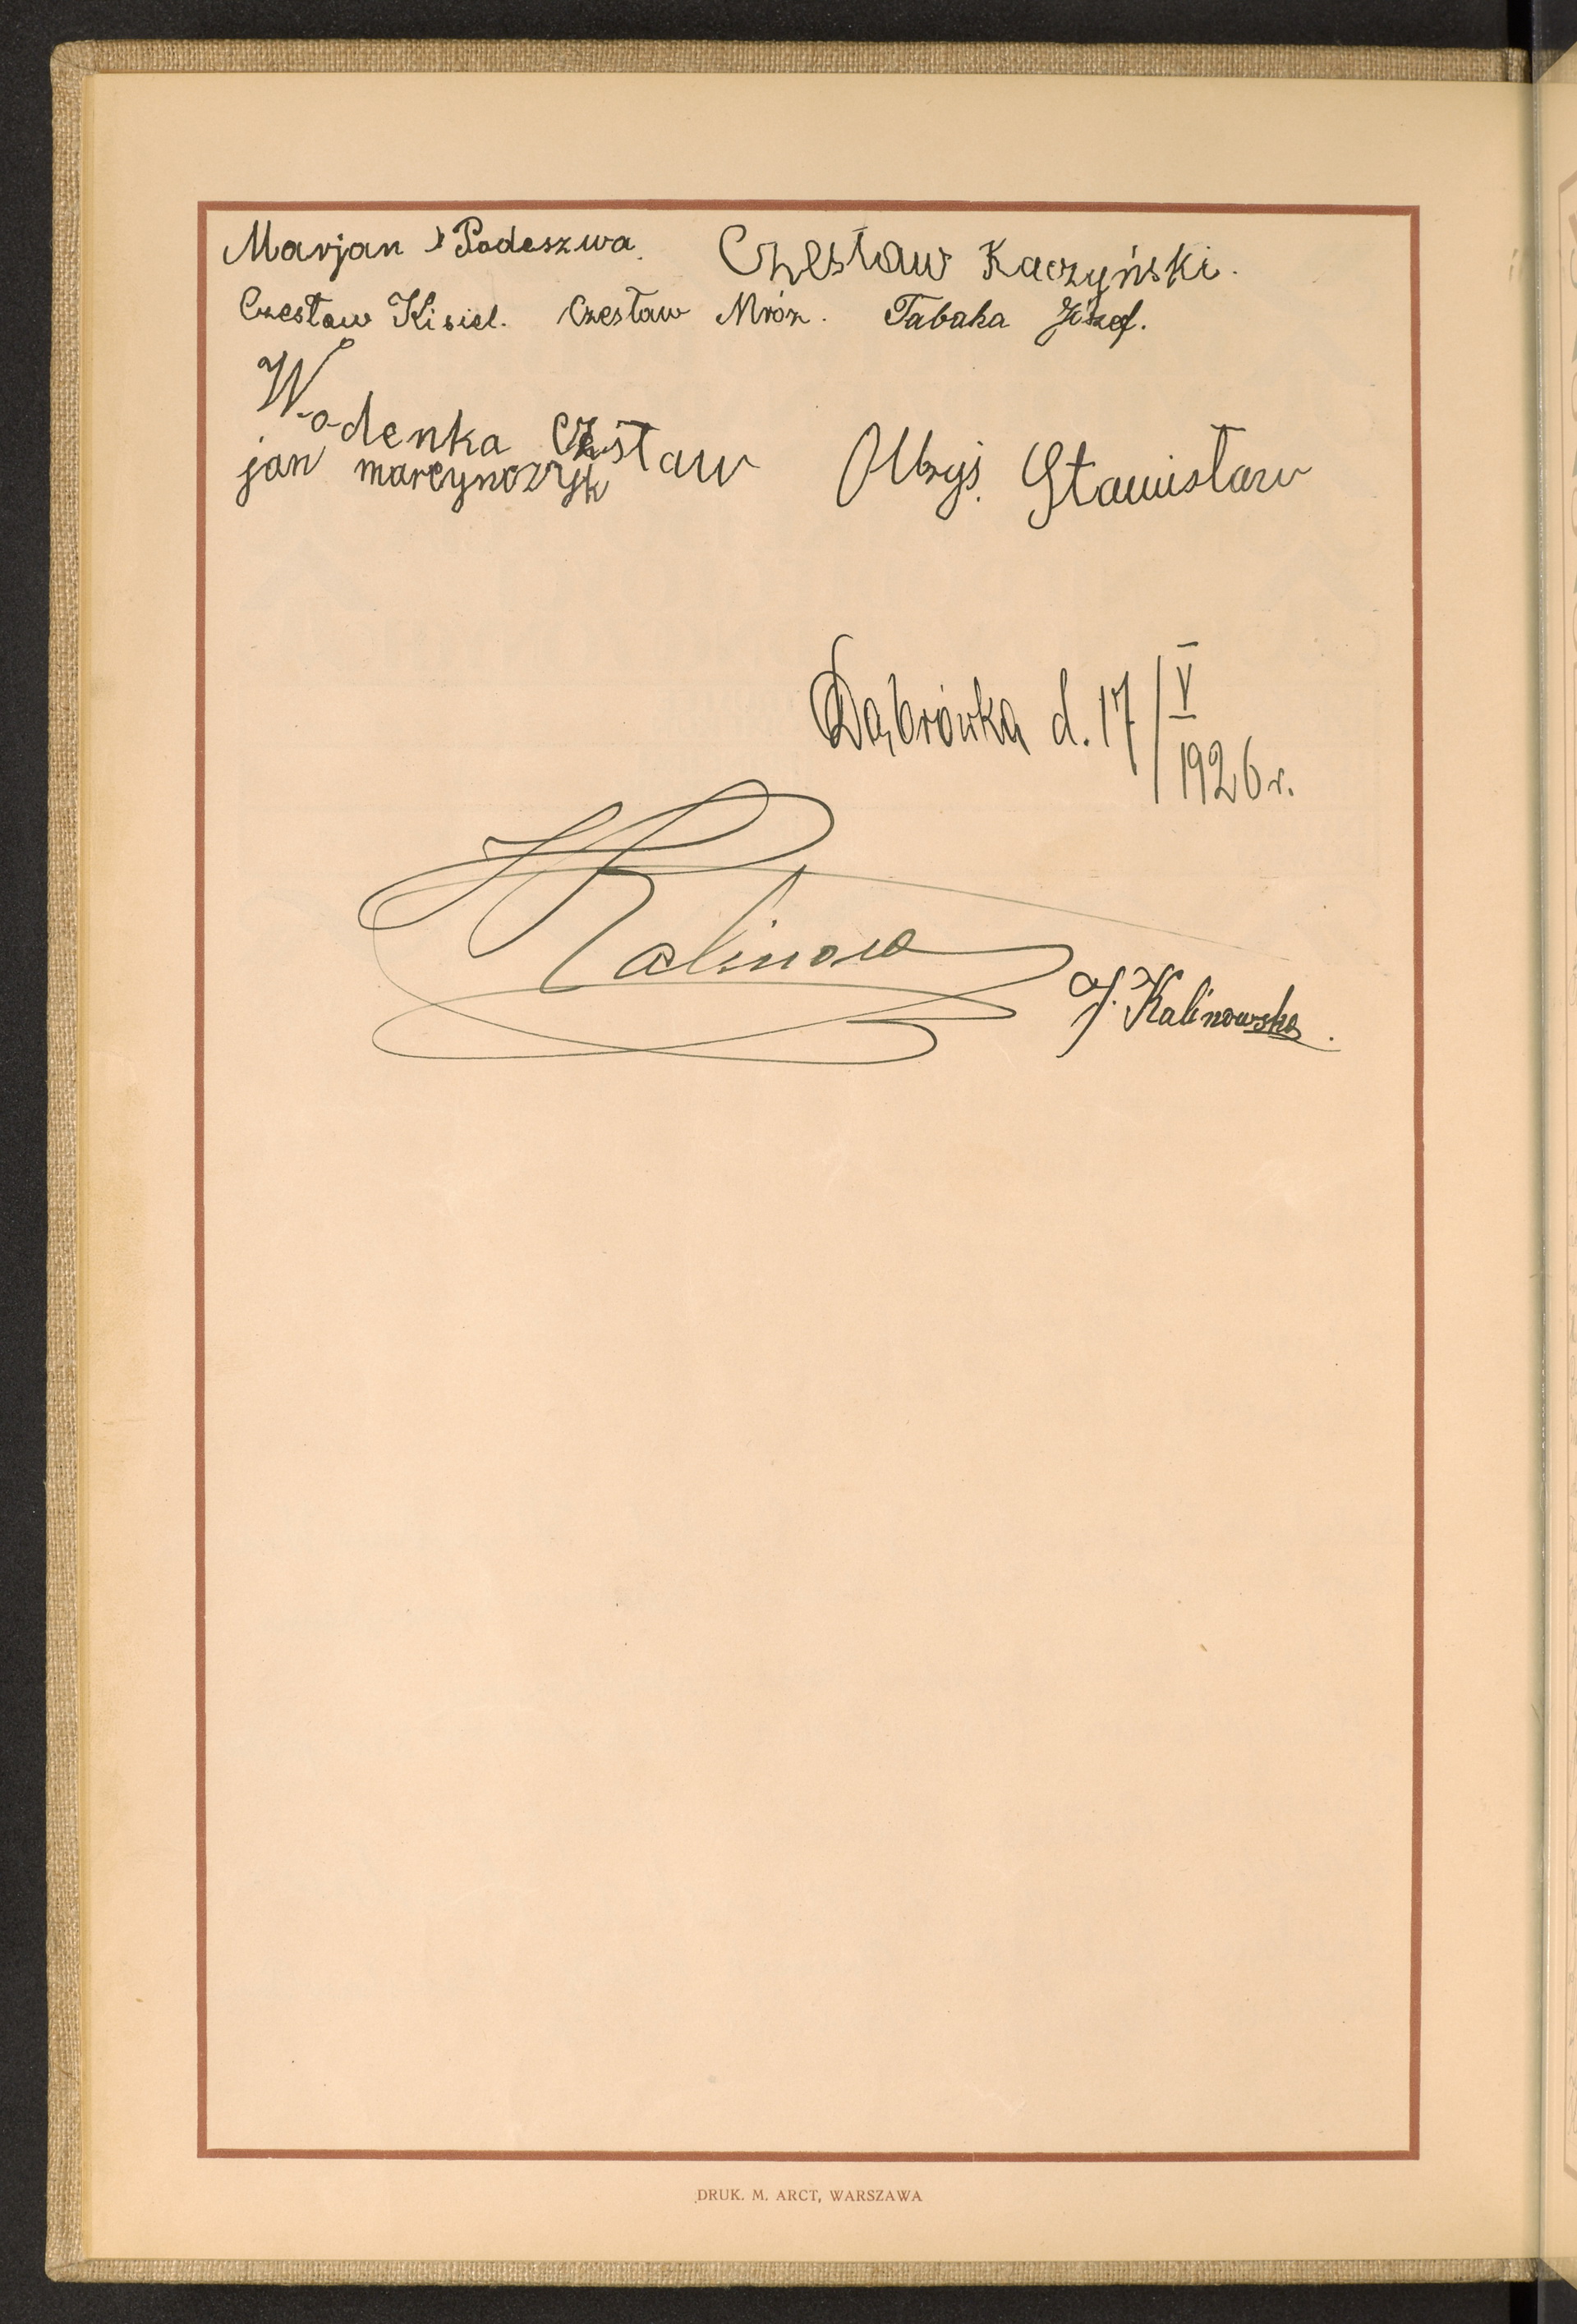 Marjan Podeszwa. Czesław Kaczyński.
Czesław Kisiel. Czesław Mróz. Tabaka Józef.
Wodenka Czesław
jan marcynczyk Olbryś. Stanisław
Dąbrówka d. 17/V
1926 r.
J. Kalinowska.
DRUK. M. ARCT, WARSZAWA